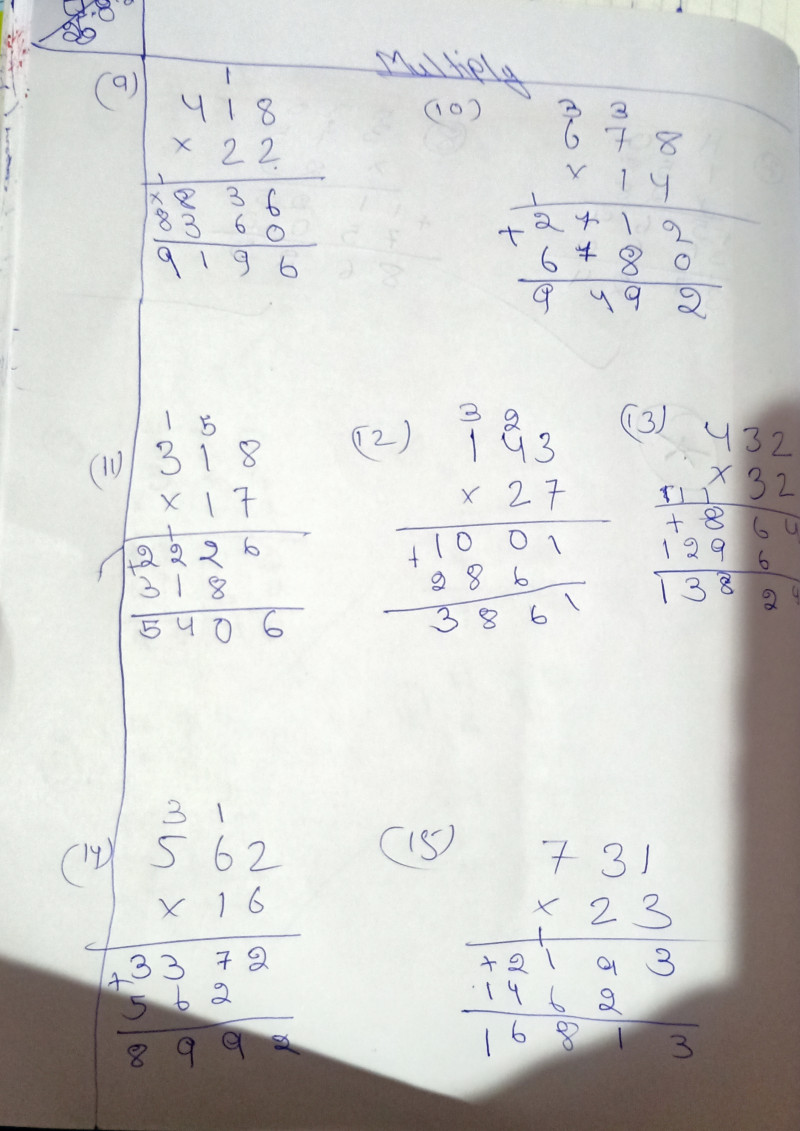 Multiply
(9)
1
4 1 8
× 2 2
1
× 8 3 6
8 3 6 0
9 1 9 6
(10)
3 3
6 7 8
× 1 4
1
+ 2 7 1 2
6 7 8 0
9 4 9 2
(11)
1 5
3 1 8
× 1 7
1
+ 2 2 2 6
3 1 8
5 4 0 6
(12)
3 2
1 4 3
× 2 7
+ 1 0 0 1
2 8 6
3 8 6 1
(13)
4 3 2
× 3 2
1 1
+ 8 6 4
1 2 9 6
1 3 8 2
(14)
3 1
5 6 2
× 1 6
+ 3 3 7 2
5 6 2
8 9 9 2
(15)
7 3 1
× 2 3
1
+ 2 1 9 3
1 4 6 2
1 6 8 1 3